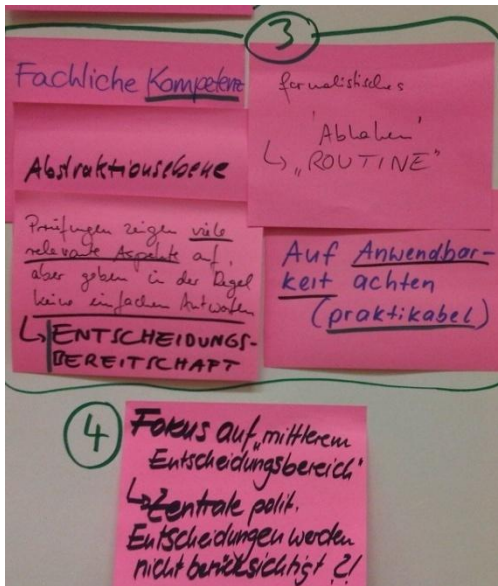 3
Fachliche Kompetenz
Abstraktionsebene
Prüfungen zeigen viele
relevante Aspekte auf,
aber geben in der Regel
keine einfachen Antworten
↳ ENTSCHEIDUNGS-
BEREITSCHAFT
formalistisches
'Abhaken'
↳ „ROUTINE"
Auf Anwendbar-
keit achten
(praktikabel)
4
Fokus auf „mittlerem
Entscheidungsbereich"
↳ Zentrale polit.
Entscheidungen werden
nicht berücksichtigt ?!